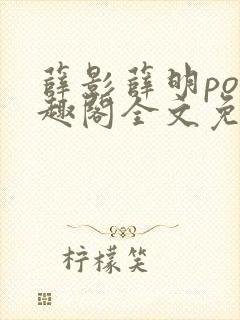 薛影薛明po
趣阁全文免
柠檬笑